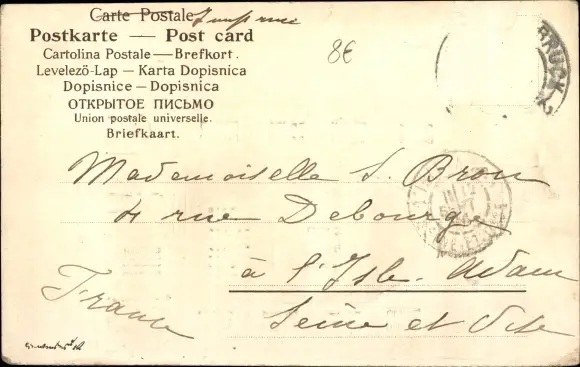 Carte Postale Imprimé
8€
Postkarte — Post card
Cartolina Postale — Brefkort.
Levelező-Lap — Karta Dopisnica
Dopisnice — Dopisnica
ОТКРЫТОЕ ПИСЬМО
Union postale universelle.
Briefkaart.
BRUCK
Mademoiselle S. Brou
4 rue Debourge
à l'Isle. Adam
France
Seine et Oise